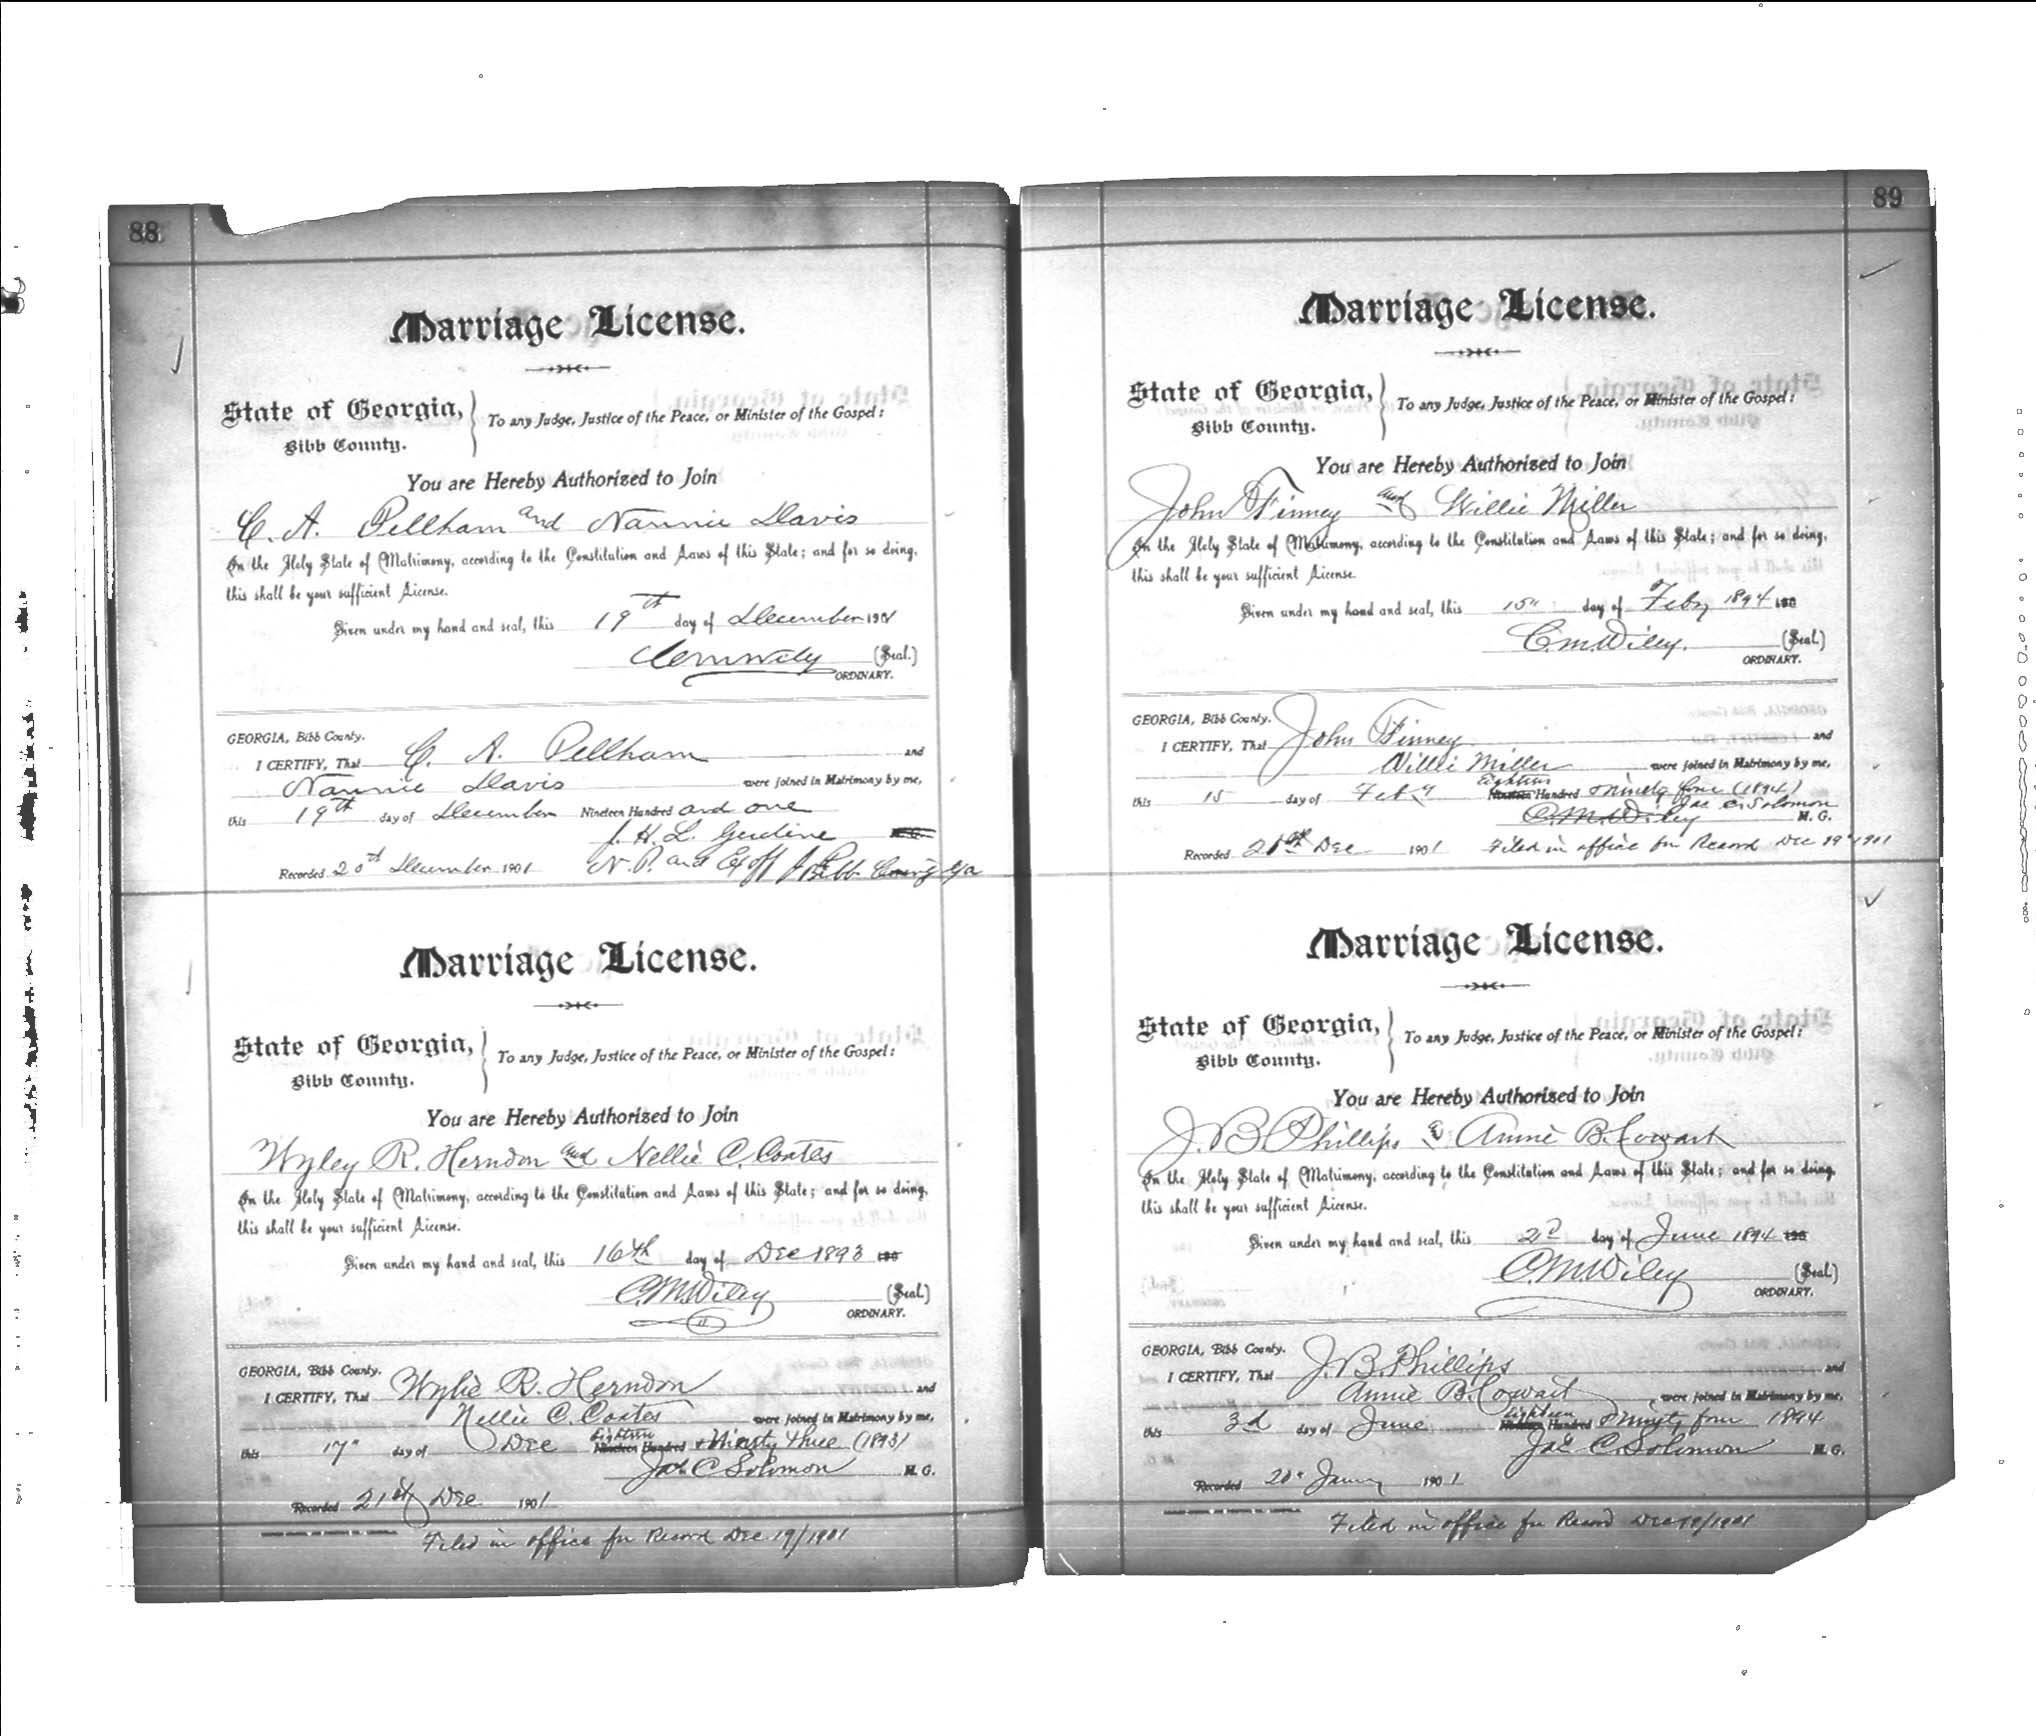 88
Marriage License.
State of Georgia,
Bibb County.
To any Judge, Justice of the Peace, or Minister of the Gospel:
You are Hereby Authorized to Join
C. A. Pellham and Nannie Davis
In the Holy State of Matrimony, according to the Constitution and Laws of this State; and for so doing,
this shall be your sufficient License.
Given under my hand and seal, this 19th day of December 1901
C M Wiley (Seal.)
ORDINARY.
GEORGIA, Bibb County.
I CERTIFY, That C. A. Pellham and
Nannie Davis were joined in Matrimony by me,
this 19th day of December Nineteen Hundred and one
J. H. L. Gerdine M. G.
Recorded 20th December 1901 N. P. and Ex off J. P. Bibb County Ga
Marriage License.
State of Georgia,
Bibb County.
To any Judge, Justice of the Peace, or Minister of the Gospel:
You are Hereby Authorized to Join
Wyley R. Herndon and Nellie C. Coates
In the Holy State of Matrimony, according to the Constitution and Laws of this State; and for so doing,
this shall be your sufficient License.
Given under my hand and seal, this 16th day of Dec 1893 190
C. M. Wiley (Seal.)
ORDINARY.
GEORGIA, Bibb County.
I CERTIFY, That Wylie R. Herndon and
Nellie C. Coates were joined in Matrimony by me,
Eighteen
this 17" day of Dec Nineteen Hundred & Ninety three (1893)
Jas C Solomon M. G.
Recorded 21st Dec 1901
Filed in office for Record Dec 19/1901
89
Marriage License.
State of Georgia,
Bibb County.
To any Judge, Justice of the Peace, or Minister of the Gospel:
You are Hereby Authorized to Join
John Finney and Willie Miller
In the Holy State of Matrimony, according to the Constitution and Laws of this State; and for so doing,
this shall be your sufficient License.
Given under my hand and seal, this 15" day of Feby 1894 190
C. M. Wiley. (Seal.)
ORDINARY.
GEORGIA, Bibb County.
I CERTIFY, That John Finney and
Willie Miller were joined in Matrimony by me,
Eighteen
this 15 day of Feby Nineteen Hundred & Ninety four (1894)
C. M. Wiley Jas C. Solomon M. G.
Recorded 21st Dec 1901 Filed in office for Record Dec 19" 1901
Marriage License.
State of Georgia,
Bibb County.
To any Judge, Justice of the Peace, or Minister of the Gospel:
You are Hereby Authorized to Join
J. B. Phillips & Annie B. Cowart
In the Holy State of Matrimony, according to the Constitution and Laws of this State; and for so doing,
this shall be your sufficient License.
Given under my hand and seal, this 2d day of June 1894 190
C. M. Wiley (Seal.)
ORDINARY.
GEORGIA, Bibb County.
I CERTIFY, That J. B. Phillips and
Annie B. Cowart were joined in Matrimony by me,
Eighteen
this 3d day of June Nineteen Hundred & Ninety four 1894
Jas C. Solomon M. G.
Recorded 1901
Filed in office for Record Dec 19/1901